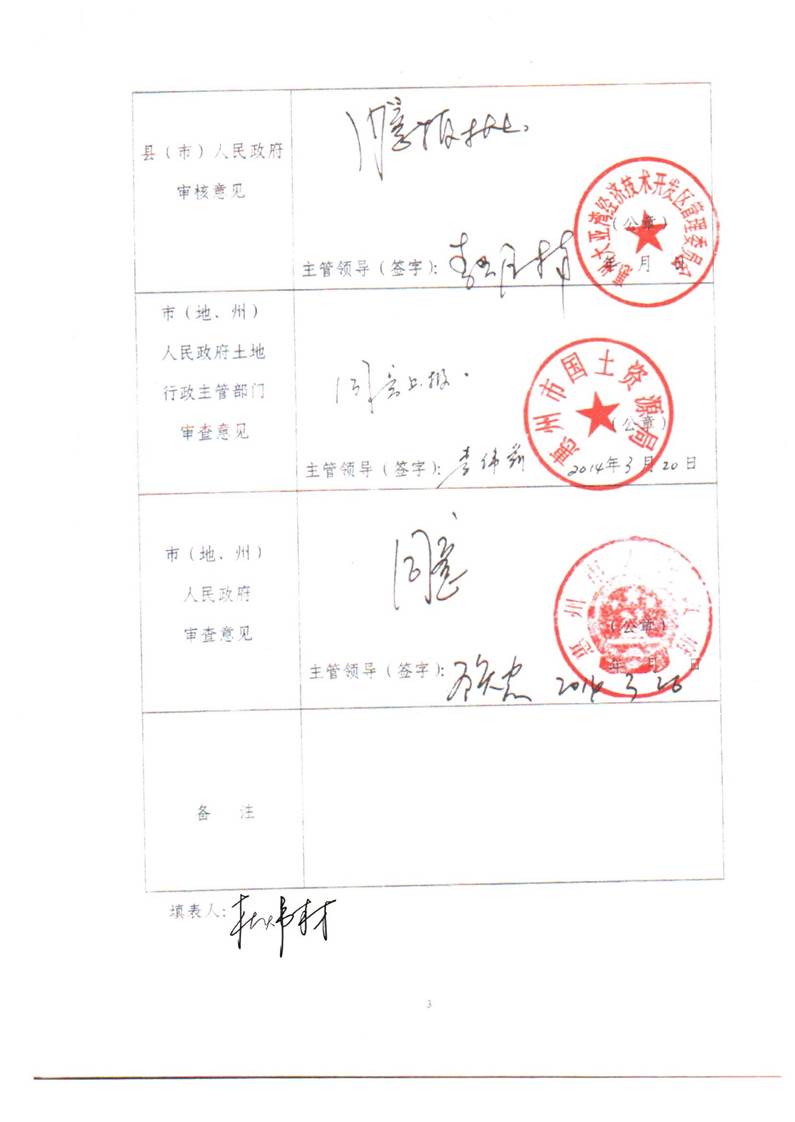 县（市）人民政府
审核意见
同意报批。
惠州大亚湾经济技术开发区管理委员会
（公章）
主管领导（签字）：
年 月 日
市（地、州）
人民政府土地
行政主管部门
审查意见
同意上报。
惠州市国土资源局
（公章）
主管领导（签字）： 2014年3月20日
市（地、州）
人民政府
审查意见
同意
惠州市人民政府
（公章）
年 月 日
主管领导（签字）： 2014 3 26
备 注
填表人：
3